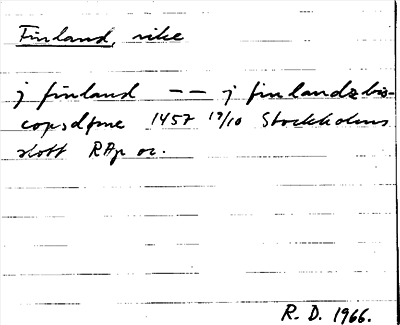 Finland, rike
j finland -- j finlandz bis-
copsdøme 1457 19/10 Stockholms
slott RAp or.
R. D. 1966.